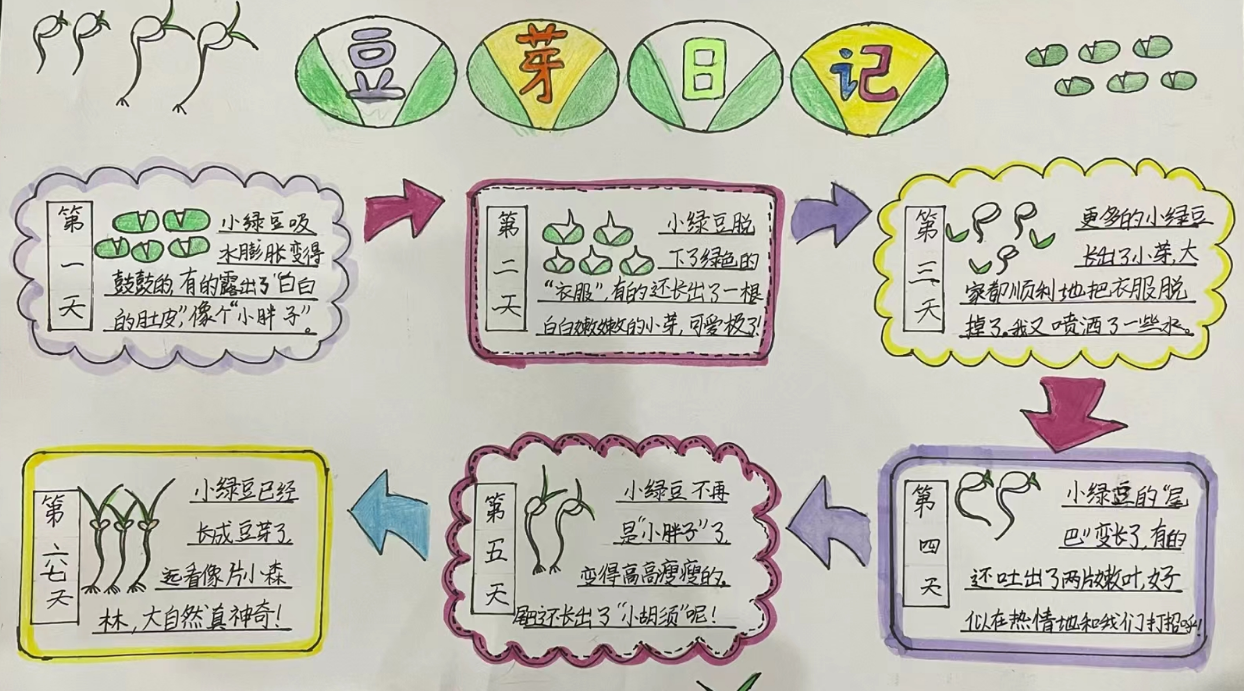 豆芽日记
第一天
小绿豆吸
水膨胀变得
鼓鼓的,有的露出了“白白
的肚皮”,像个“小胖子”。
第二天
小绿豆脱
下了绿色的
“衣服”,有的还长出了一根
白白嫩嫩的小芽,可爱极了!
第三天
更多的小绿豆
长出了小芽,大
家都顺利地把衣服脱
掉了。我又喷洒了一些水。
第四天
小绿豆的“尾
巴”变长了,有的
还吐出了两片嫩叶,好
似在热情地和我们打招呼!
第五天
小绿豆不再
是“小胖子”了,
变得高高瘦瘦的。
尾巴还长出了“小胡须”呢!
第六七天
小绿豆已经
长成豆芽了,
远看像片小森
林,大自然真神奇!